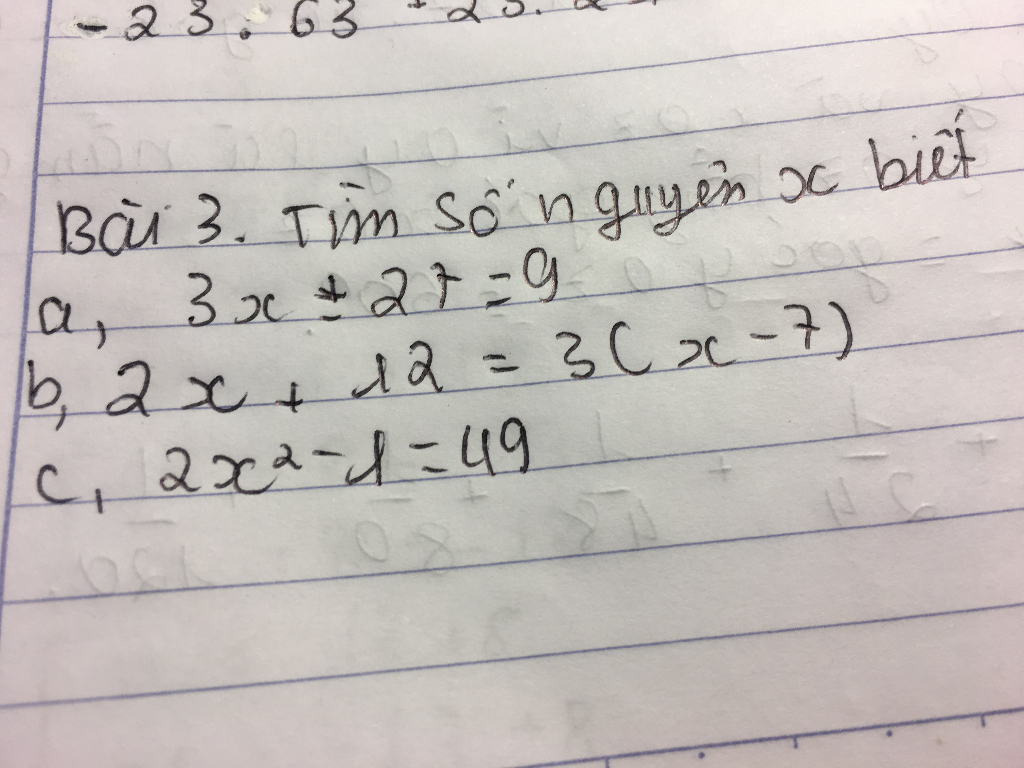 - 23 . 63 + 23.
Bài 3. Tìm số nguyên x biết
a, 3x ± 27 = 9
b, 2x + 12 = 3(x - 7)
c, 2x² - 1 = 49